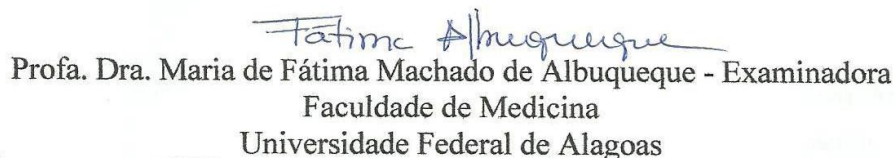 Fátima Albuquerque
Profa. Dra. Maria de Fátima Machado de Albuqueque - Examinadora
Faculdade de Medicina
Universidade Federal de Alagoas